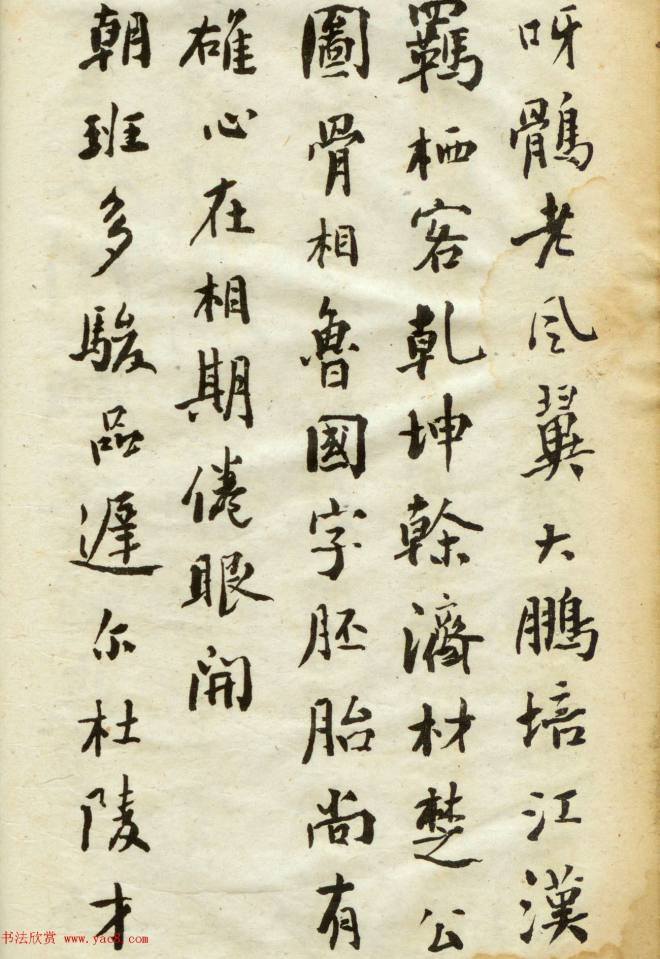 呀鶻老風翼大鵬培江漢
羈栖客乾坤幹濟材楚公
圖骨相魯國字胚胎尚有
雄心在相期倦眼開
朝班多駿品遲尔杜陵才
书法欣赏 www.yac8.com